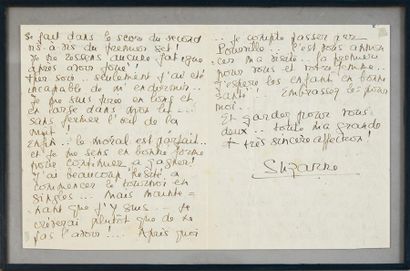 se fait dans le score du second
du premier set!
Je ne ressens aucune fatigue
après avoir joué!
Hier soir... seulement j'ai été
incapable de m'endormir...
Je me suis mise en long et
en large dans mon lit...
sans fermer l'œil de la
nuit!
Enfin... le moral est parfait...
et je me sens en bonne forme
pour continuer à gagner!
J'ai beaucoup hésité à
commencer le tournoi en
singles... Mais mainte-
nant que j'y suis... je
crèverai plutôt que de ne
pas l'avoir!... Après quoi
... je compte passer par
Pourville... c'est vous annon-
cer ma visite... la première
pour vous et votre femme...
J'espère les enfants en bonne
santé! Embrassez les pour
moi...
Et gardez pour vous
deux... toute ma grande
+ très sincère affection!
Suzanne